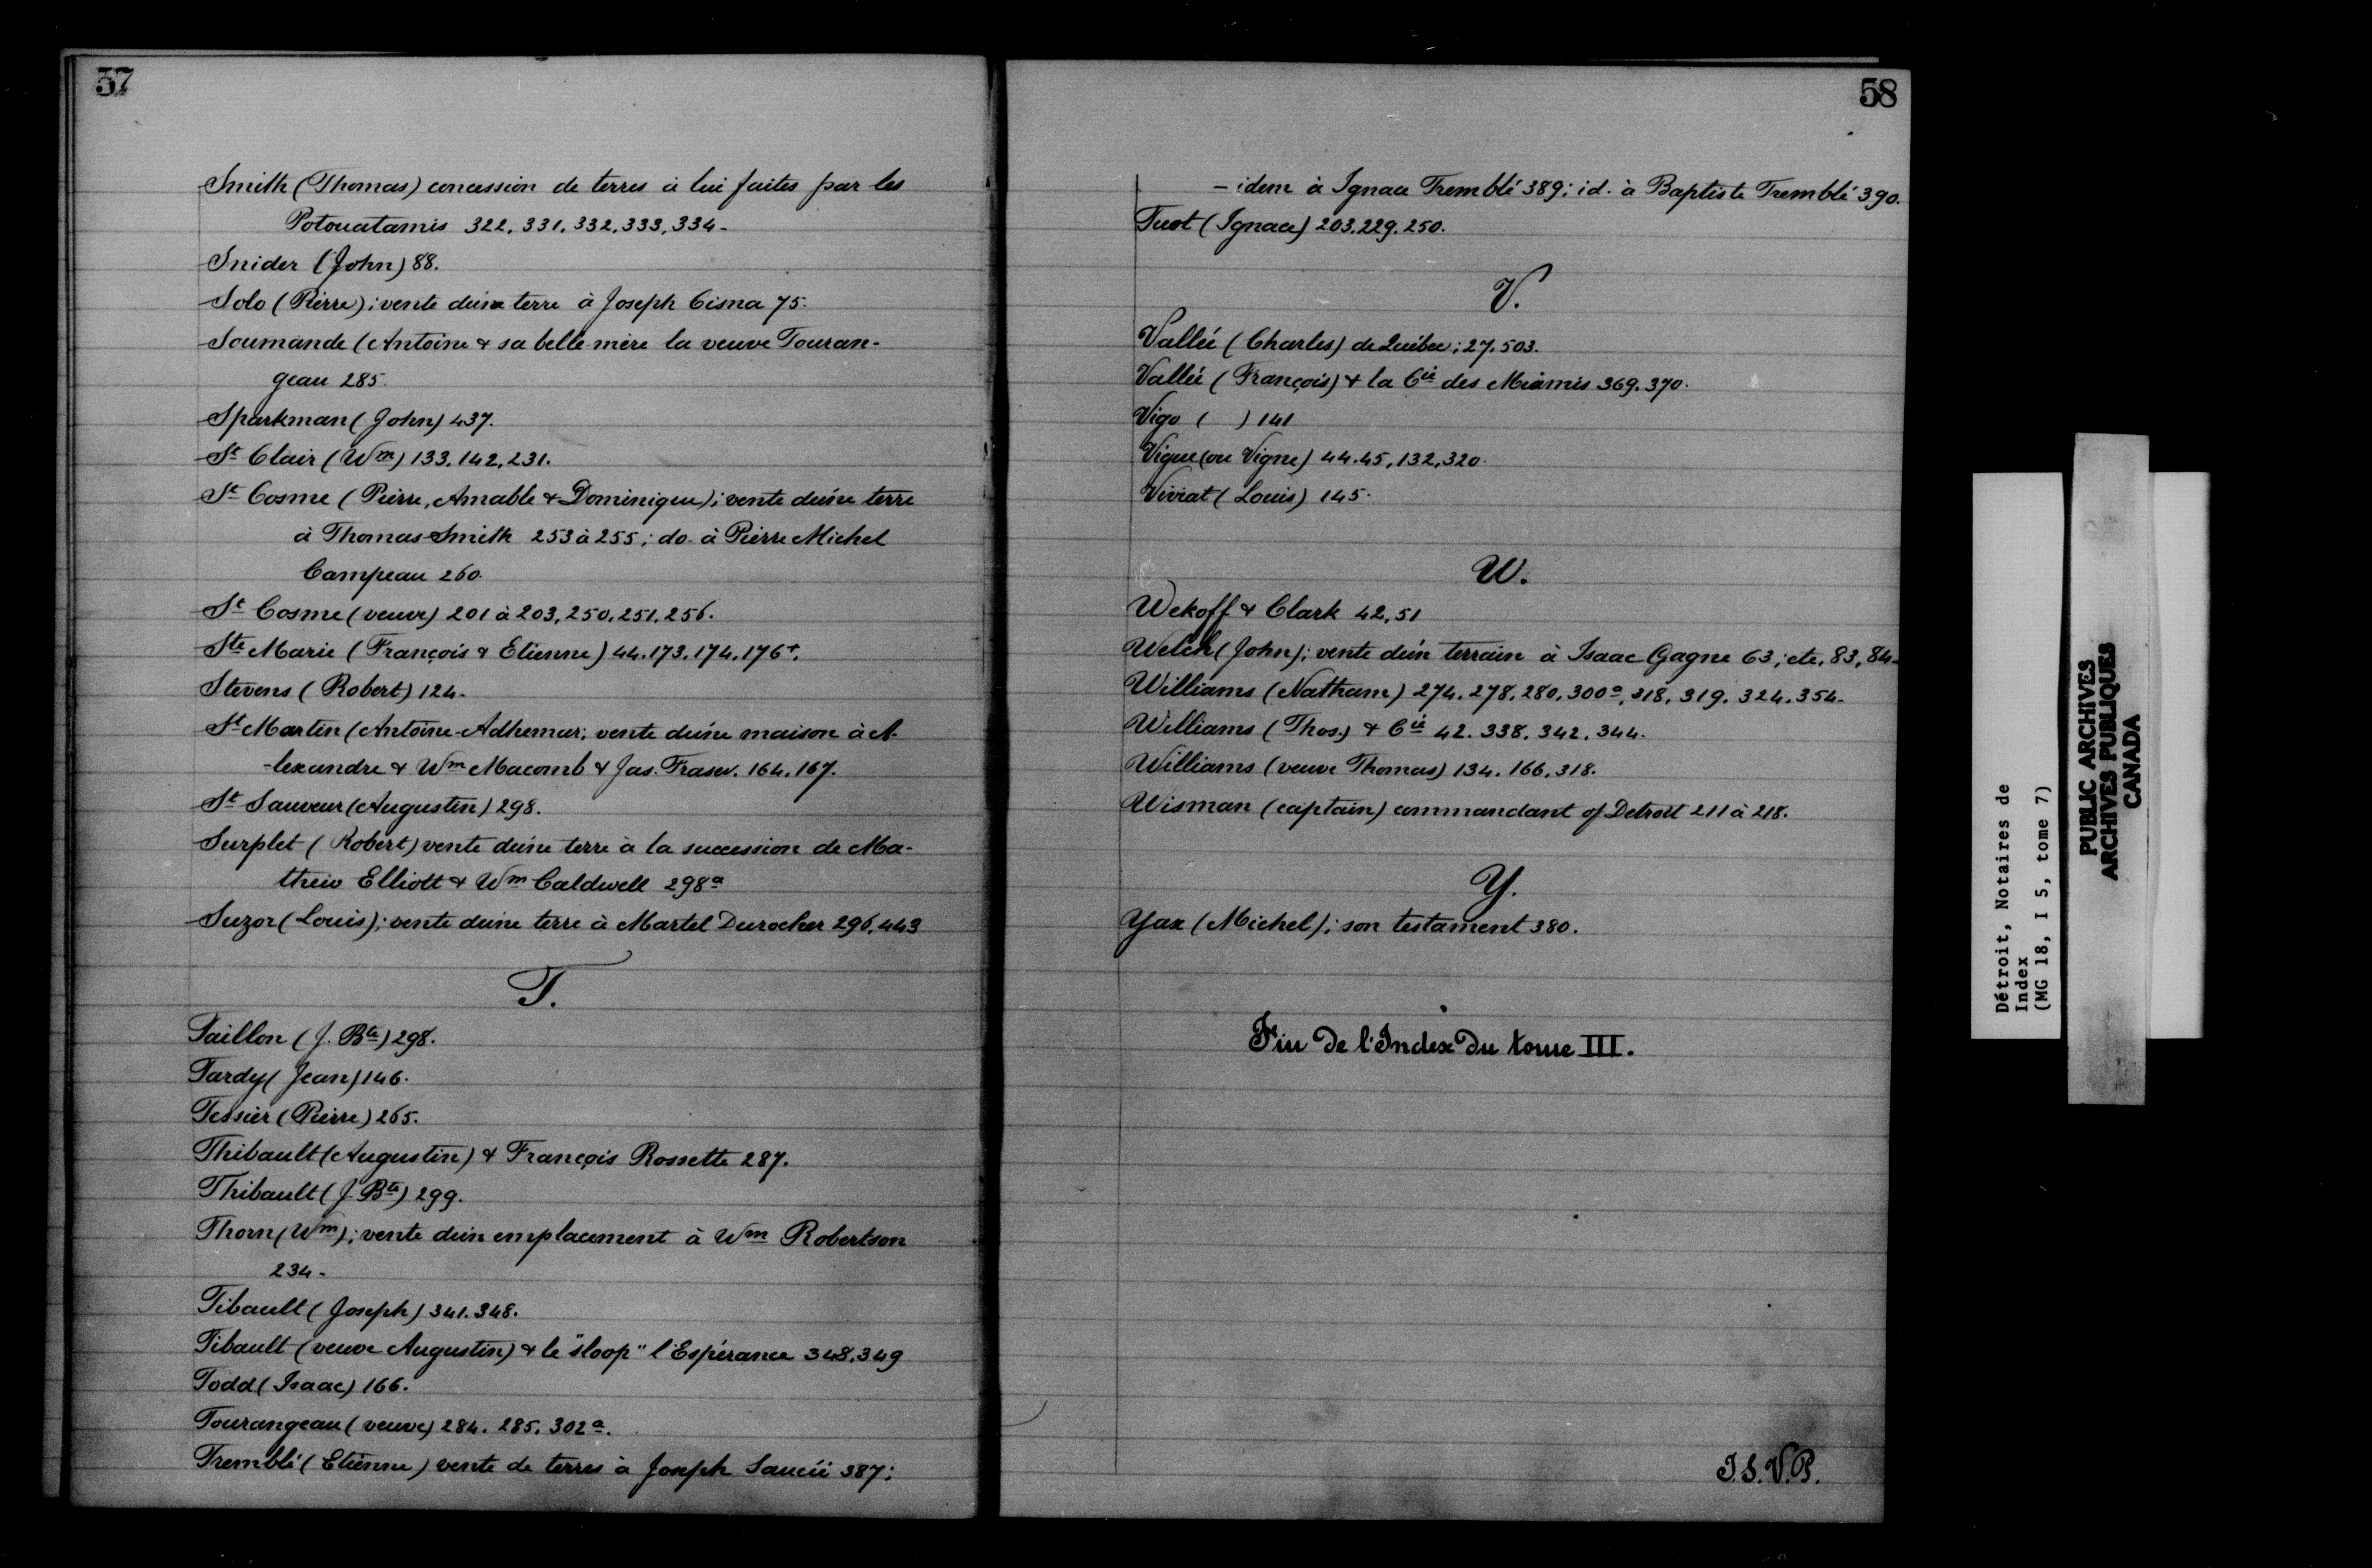 57
Smith (Thomas) concession de terres à lui faites par les
Potouatamis 322, 331, 332, 333, 334-
Snider (John) 88.
Solo (Pierre); vente d'une terre à Joseph Cisna 75.
Soumande (Antoine & sa belle-mère la veuve Touran-
geau 285.
Sparkman (John) 437.
St Clair (Wm) 133, 142, 231.
St Cosme (Pierre, Amable & Dominique); vente d'une terre
à Thomas Smith 253 à 255; do- à Pierre Michel
Campeau 260.
St Cosme (veuve) 201 à 203, 250, 251, 256.
Ste Marie (François & Etienne) 44, 173, 174, 176+.
Stevens (Robert) 124-
St Martin (Antoine-Adhemar; vente d'une maison à A-
-lexandre & Wm Macomb & Jas. Fraser. 164, 167.
St Sauveur (Augustin) 298.
Surplet (Robert) vente d'une terre à la succession de Ma-
thew Elliott & Wm Caldwell 298a
Suzor (Louis); vente d'une terre à Martel Durocher 296, 443
T.
Taillon (J. Bte) 298.
Tardy (Jean) 146.
Tessier (Pierre) 265.
Thibault (Augustin) & François Rossette 287.
Thibault (J. Bte) 299.
Thorn (Wm); vente d'un emplacement à Wm Robertson
234-
Tibault (Joseph) 341. 348.
Tibault (veuve Augustin) & le "sloop" l'Espérance 348, 349
Todd (Isaac) 166.
Tourangeau (veuve) 284. 285. 302a.
Tremblé (Etienne) vente de terres à Joseph Saucié 387;
58
- idem à Ignace Tremblé 389; id. à Baptiste Tremblé 390.
Tuot (Ignace) 203. 229. 250.
V.
Vallée (Charles) de Québec; 27. 503.
Vallée (François) & la Cie des Miamis 369. 370.
Vigo ( ) 141
Vigue (ou Vigne) 44. 45, 132, 320.
Viviat (Louis) 145.
W.
Wekoff & Clark 42, 51
Welch (John); vente d'un terrain à Isaac Gagne 63; etc, 83, 84-
Williams (Natham) 274. 278. 280, 300a, 318, 319. 324. 354-
Williams (Thos.) & Cie 42. 338. 342. 344.
Williams (veuve Thomas) 134. 166. 318.
Wisman (captain) commandant of Detroit 211 à 218.
Y.
Yax (Michel); son testament 380.
Fin de l'Index du tome III.
T.S.V.P.
Détroit, Notaires de
Index
(MG 18, I 5, tome 7)
PUBLIC ARCHIVES
ARCHIVES PUBLIQUES
CANADA